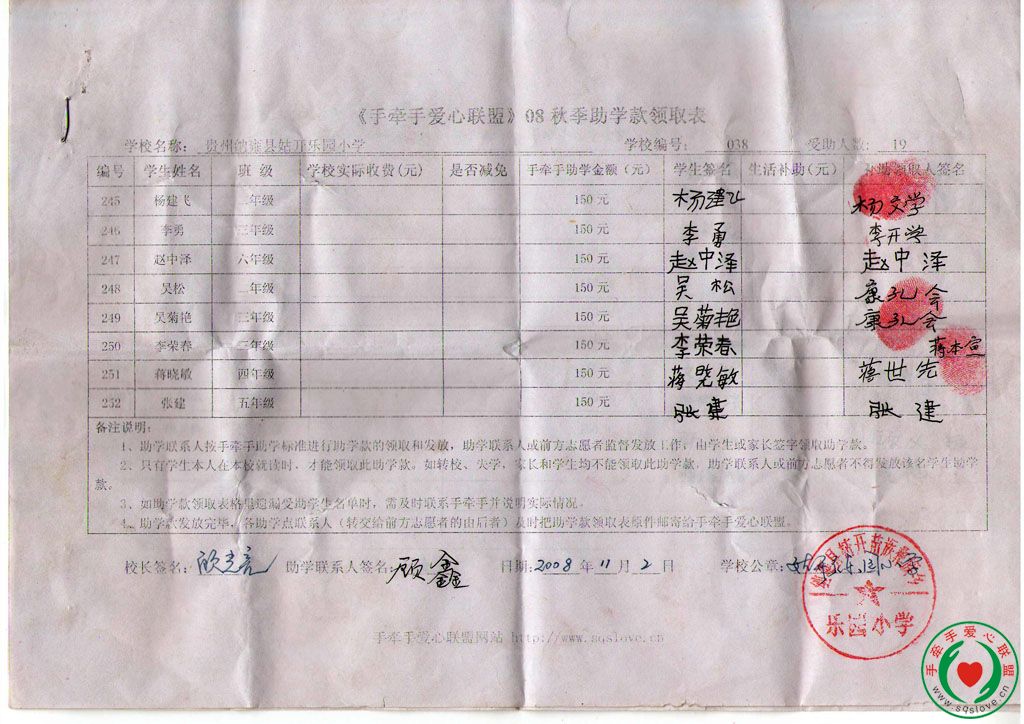 《手牵手爱心联盟》08 秋季助学款领取表
学校名称: 贵州纳雍县姑开乐园小学 学校编号: 038 受助人数: 19
编号 学生姓名 班 级 学校实际收费(元) 是否减免 手牵手助学金额（元） 学生签名 生活补助(元) 补助领取人签名
245 杨建飞 二年级 150 元 杨建飞 杨文学
246 李勇 三年级 150 元 李勇 李开学
247 赵中泽 六年级 150 元 赵中泽 赵中泽
248 吴松 二年级 150 元 吴松 康孔会
249 吴菊艳 三年级 150 元 吴菊艳 康孔会
250 李荣春 三年级 150 元 李荣春 蒋本宣
251 蒋晓敏 四年级 150 元 蒋晓敏 蒋世先
252 张建 五年级 150 元 张建 张建
备注说明:
1、助学联系人按手牵手助学标准进行助学款的领取和发放，助学联系人或前方志愿者监督发放工作，由学生或家长签字领取助学款。
2、只有学生本人在本校就读时，才能领取此助学款。如转校、失学，家长和学生均不能领取此助学款，助学联系人或前方志愿者不得发放该名学生助学
款。
3、如助学款领取表格里遗漏受助学生名单时，需及时联系手牵手并说明实际情况。
4、助学款发放完毕，各助学点联系人（转交给前方志愿者的由后者）及时把助学款领取表原件邮寄给手牵手爱心联盟。
校长签名: 助学联系人签名: 顾鑫 日期: 2008 年 11 月 2 日 学校公章: 姑开乐园小学
乐园小学
手牵手爱心联盟网站 http://www.sqslove.cn
手牵手爱心联盟
www.sqslove.cn